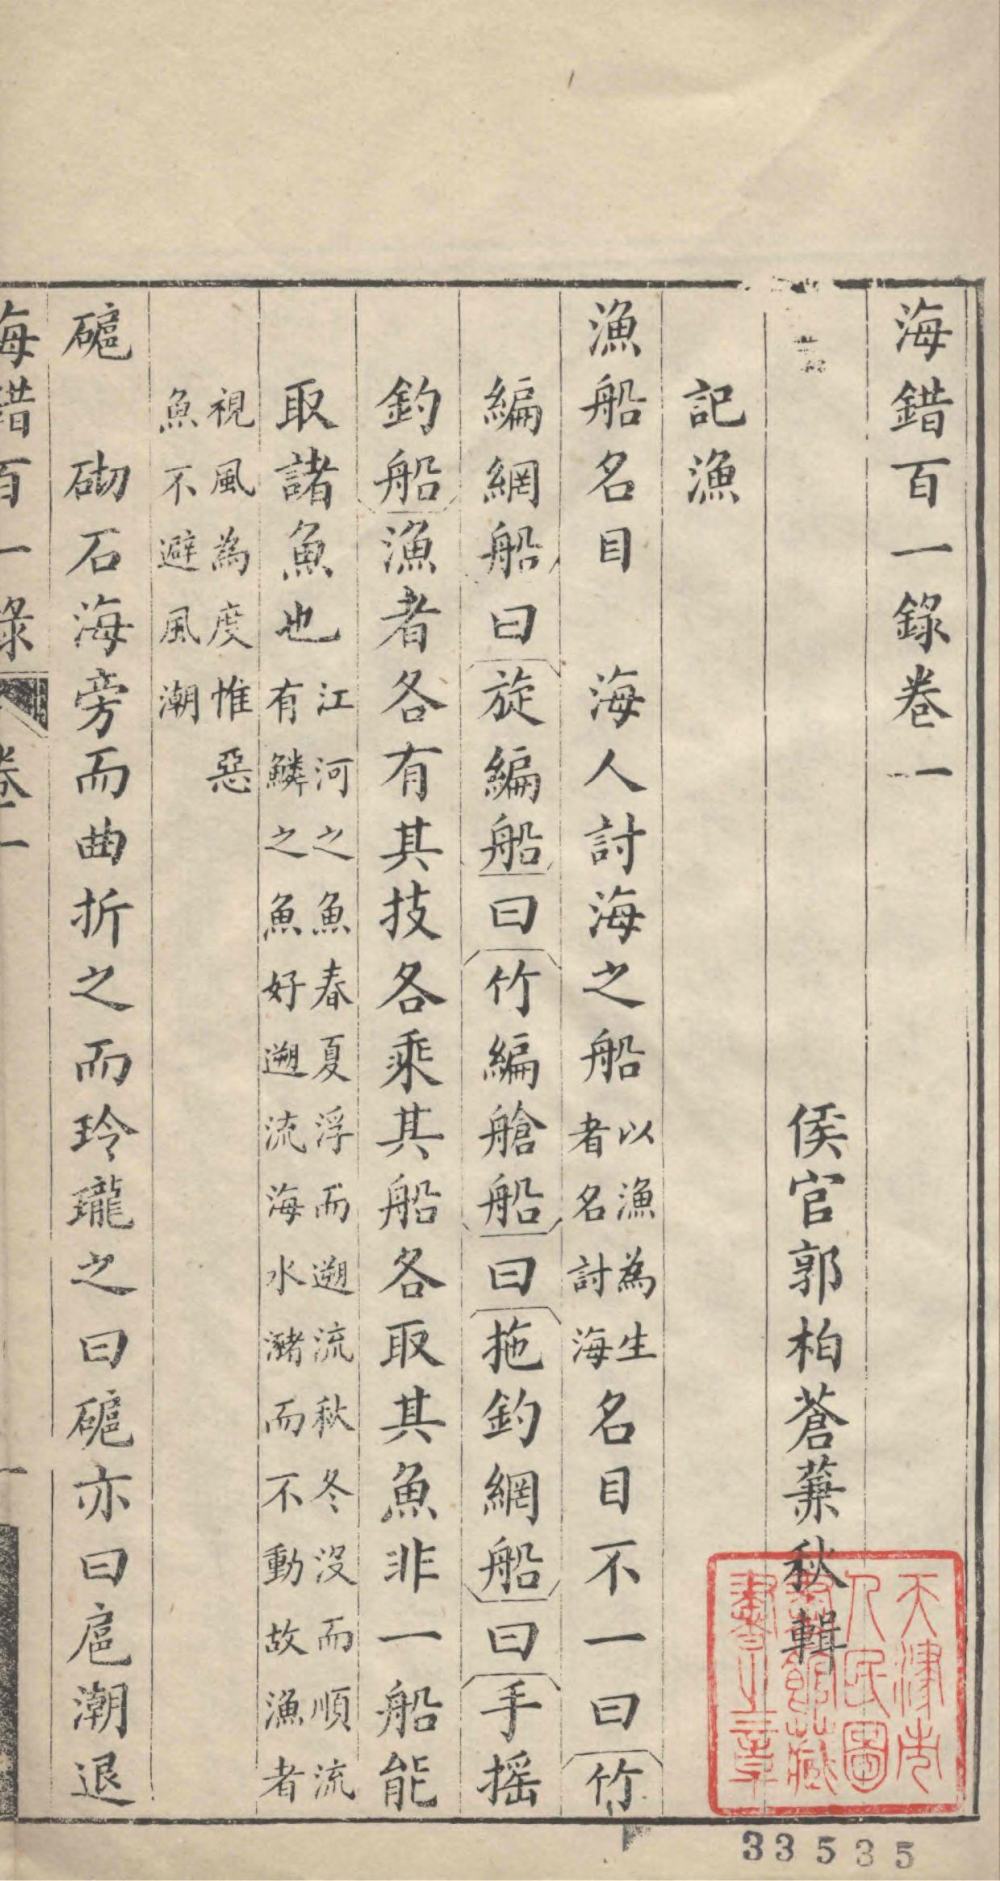 海錯百一錄卷一
侯官郭柏蒼蒹秋輯
記漁
漁船名目　海人討海之船以漁為生者名討海名目不一曰竹
編網船曰旋編船曰竹編艙船曰拖釣網船曰手搖
釣船漁者各有其技各乘其船各取其魚非一船能
取諸魚也江河之魚春夏浮而遡流秋冬沒而順流有鱗之魚好遡流海水瀦而不動故漁者
視風為度惟惡魚不避風潮
䃖　砌石海旁而曲折之而玲瓏之曰䃖亦曰扈潮退
海錯百一錄　卷一　一
天津市人民圖書館藏書之章
33535